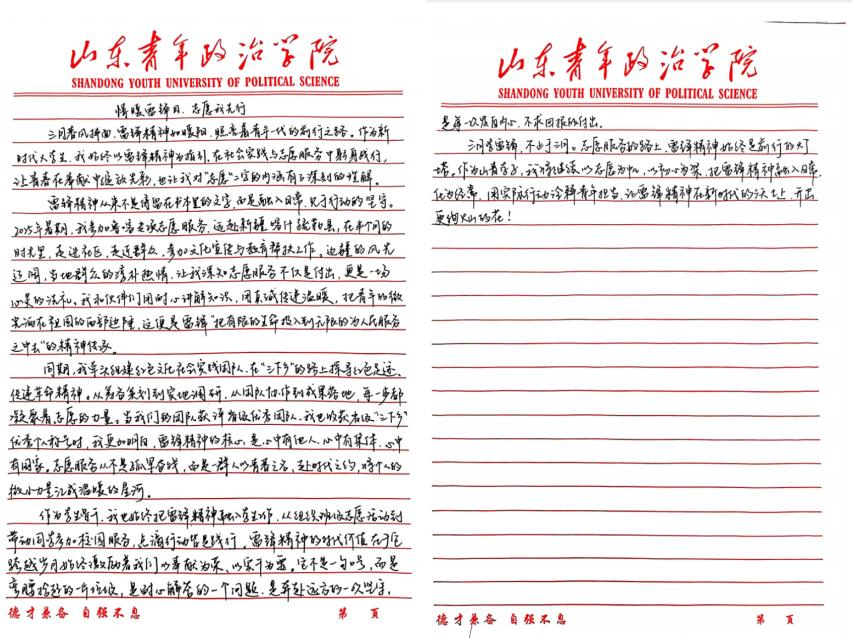 山东青年政治学院
SHANDONG YOUTH UNIVERSITY OF POLITICAL SCIENCE
情暖雷锋月，志愿我先行
三月春风拂面，雷锋精神如暖阳，照亮着青年一代的前行之路。作为新
时代大学生，我始终以雷锋精神为指引，在社会实践与志愿服务中躬身践行，
让青春在奉献中绽放光彩，也让我对“志愿”二字的内涵有了深刻的理解。
雷锋精神从来不是停留在书本里的文字，而是融入日常、见于行动的坚守。
2025年暑期，我参加志愿服务，远赴新疆喀什疏勒县，在半个月的
时光里，走进社区，走近群众，参加文化宣传与教育帮扶工作。边疆的风光
辽阔，当地群众的淳朴热情，让我深知志愿服务不仅是付出，更是一场
心灵的洗礼。我和伙伴们用耐心讲解知识，用真诚传递温暖，把青年的微
光洒在祖国的西部边陲，这便是雷锋“把有限的生命投入到无限的为人民服务
之中去”的精神传承。
同期，我牵头组建红色文化社会实践团队，在“三下乡”的路上探寻红色足迹、
传递革命精神。从筹备策划到实地调研，从团队协作到成果落地，每一步都
凝聚着志愿的力量。当我们的团队获评省级优秀团队，我也收获省级“三下乡”
优秀个人称号时，我更加明白，雷锋精神的核心，是心中有他人、心中有集体、心中
有国家。志愿服务从不是孤军奋战，而是一群人以青春之名，赴时代之约，将个人的
微小力量汇成温暖的星河。
作为学生骨干，我也始终把雷锋精神融入学生工作，从组织班级志愿活动到
带动同学参加校园服务，点滴行动皆是践行。雷锋精神的时代价值在于它
跨越岁月始终激励着我们以奉献为荣、以实干为要。它不是一句口号，而是
弯腰捡起的一片垃圾，是耐心解答的一个问题，是奔赴远方的一次坚守，
德才兼备 自强不息
第 页
山东青年政治学院
SHANDONG YOUTH UNIVERSITY OF POLITICAL SCIENCE
是每一次发自内心、不求回报的付出。
三月学雷锋，不止于三月。志愿服务的路上，雷锋精神始终是前行的灯
塔。作为山青学子，我将继续以志愿为帆，以初心为桨，把雷锋精神融入日常，
化为经常，用实际行动诠释青年担当，让雷锋精神在新时代的沃土上，开出
更绚烂的花！
德才兼备 自强不息
第 页